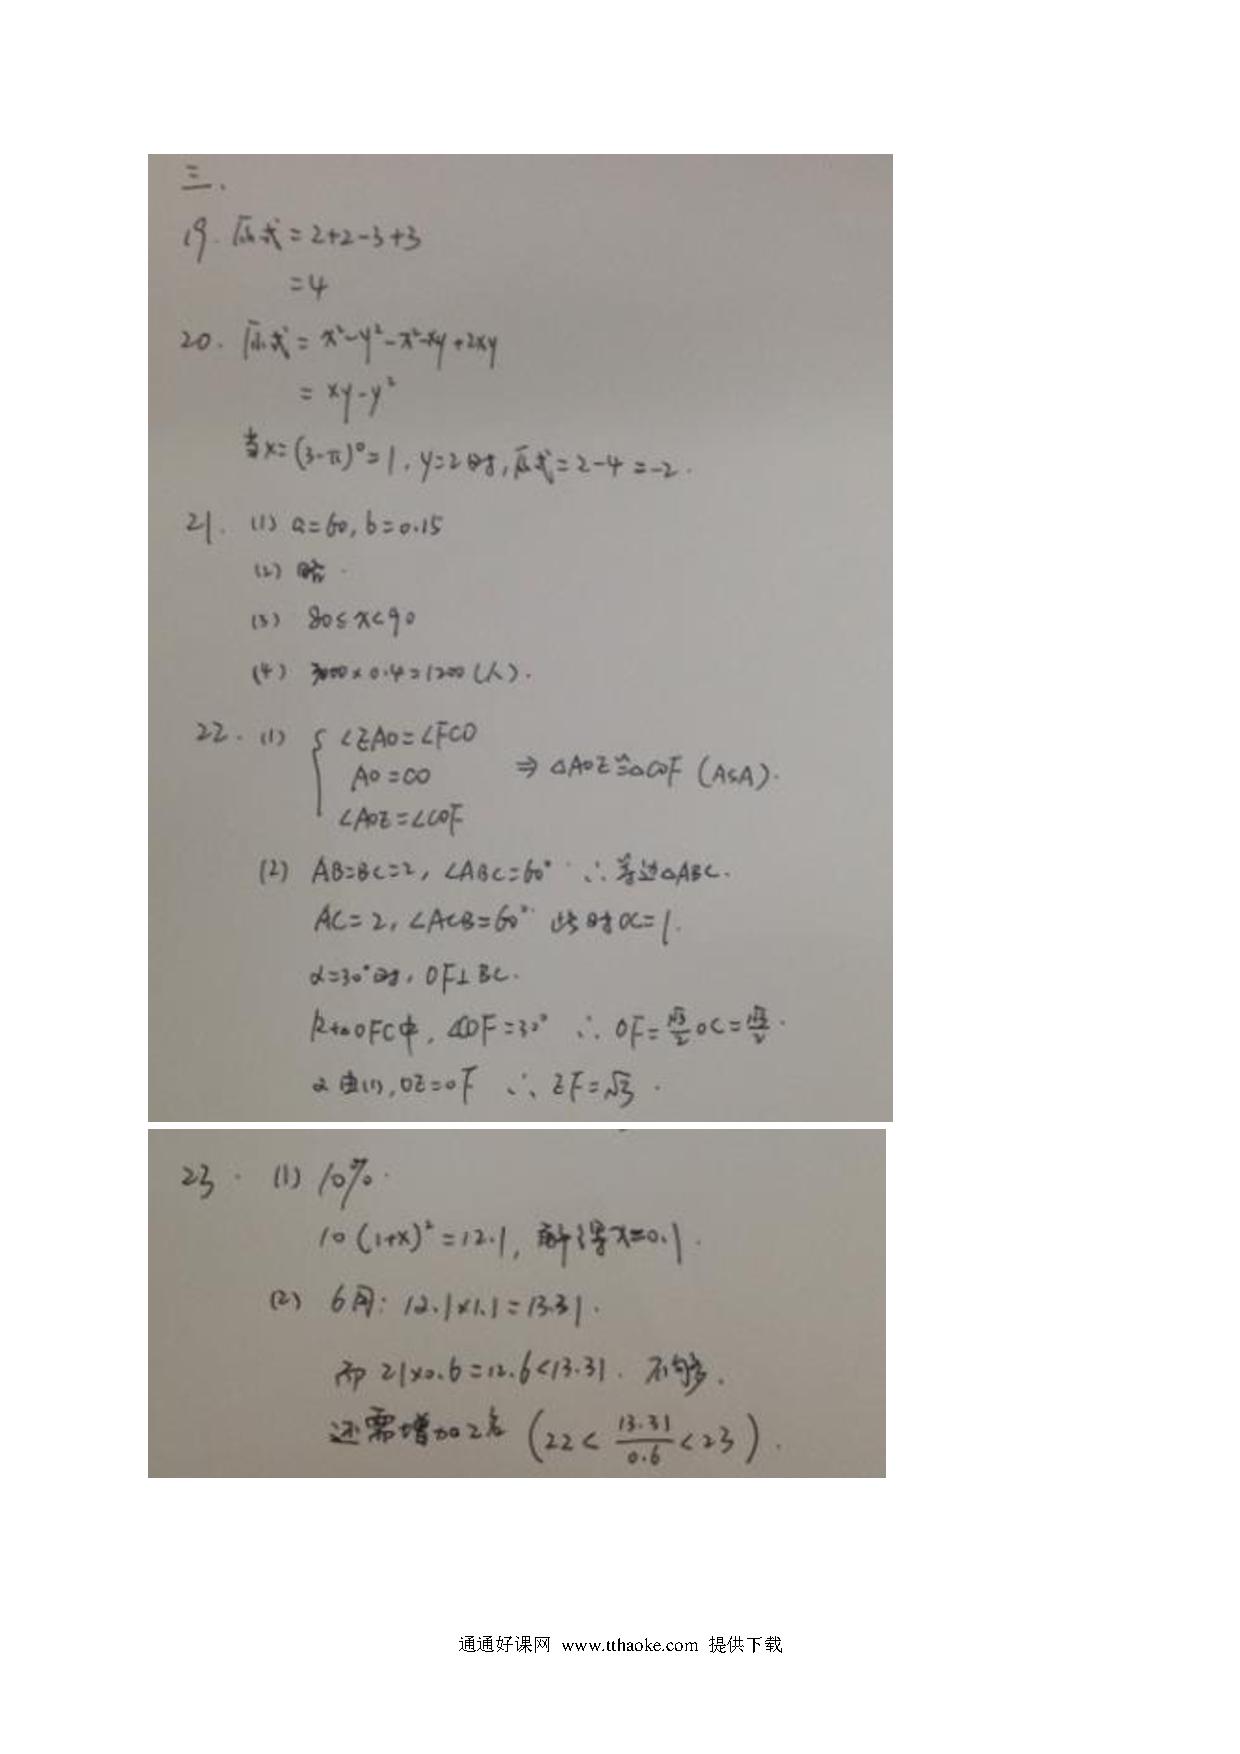 三.
19. 原式=2+2-3+3
=4
20. 原式= x²-y²-x²-xy+2xy
= xy-y²
当x=(3-π)⁰=1, y=2时,原式=2-4=-2.
21. (1) a=60, b=0.15
(2) 略.
(3) 80≤x<90
(4) 3000×0.4=1200(人).
22. (1) { ∠EAO=∠FCO
AO=CO ⇒ △AOE≌△COF (ASA).
∠AOE=∠COF
(2) AB=BC=2, ∠ABC=60° ∴等边△ABC.
AC=2, ∠ACB=60° 此时OC=1.
α=30°时, OF⊥BC.
Rt△OFC中, ∠COF=30° ∴ OF=√3/2 OC=√3/2.
又由(1), OE=OF ∴ EF=√3.
23. (1) 10%.
10(1+x)²=12.1, 解得x=0.1.
(2) 6月: 12.1×1.1=13.31.
而 21×0.6=12.6<13.31. 不够.
还需增加2名 (22< 13.31/0.6 <23).
通通好课网 www.tthaoke.com 提供下载